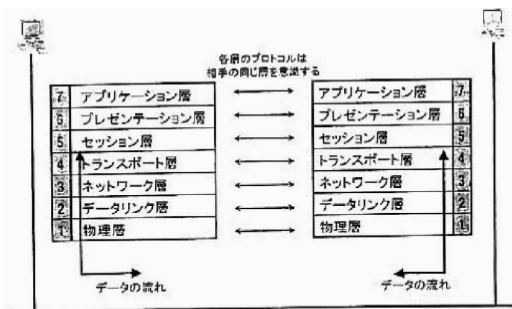 各層のプロトコルは
相手の同じ層を意識する
7 アプリケーション層
6 プレゼンテーション層
5 セッション層
4 トランスポート層
3 ネットワーク層
2 データリンク層
1 物理層
アプリケーション層 7
プレゼンテーション層 6
セッション層 5
トランスポート層 4
ネットワーク層 3
データリンク層 2
物理層 1
データの流れ
データの流れ